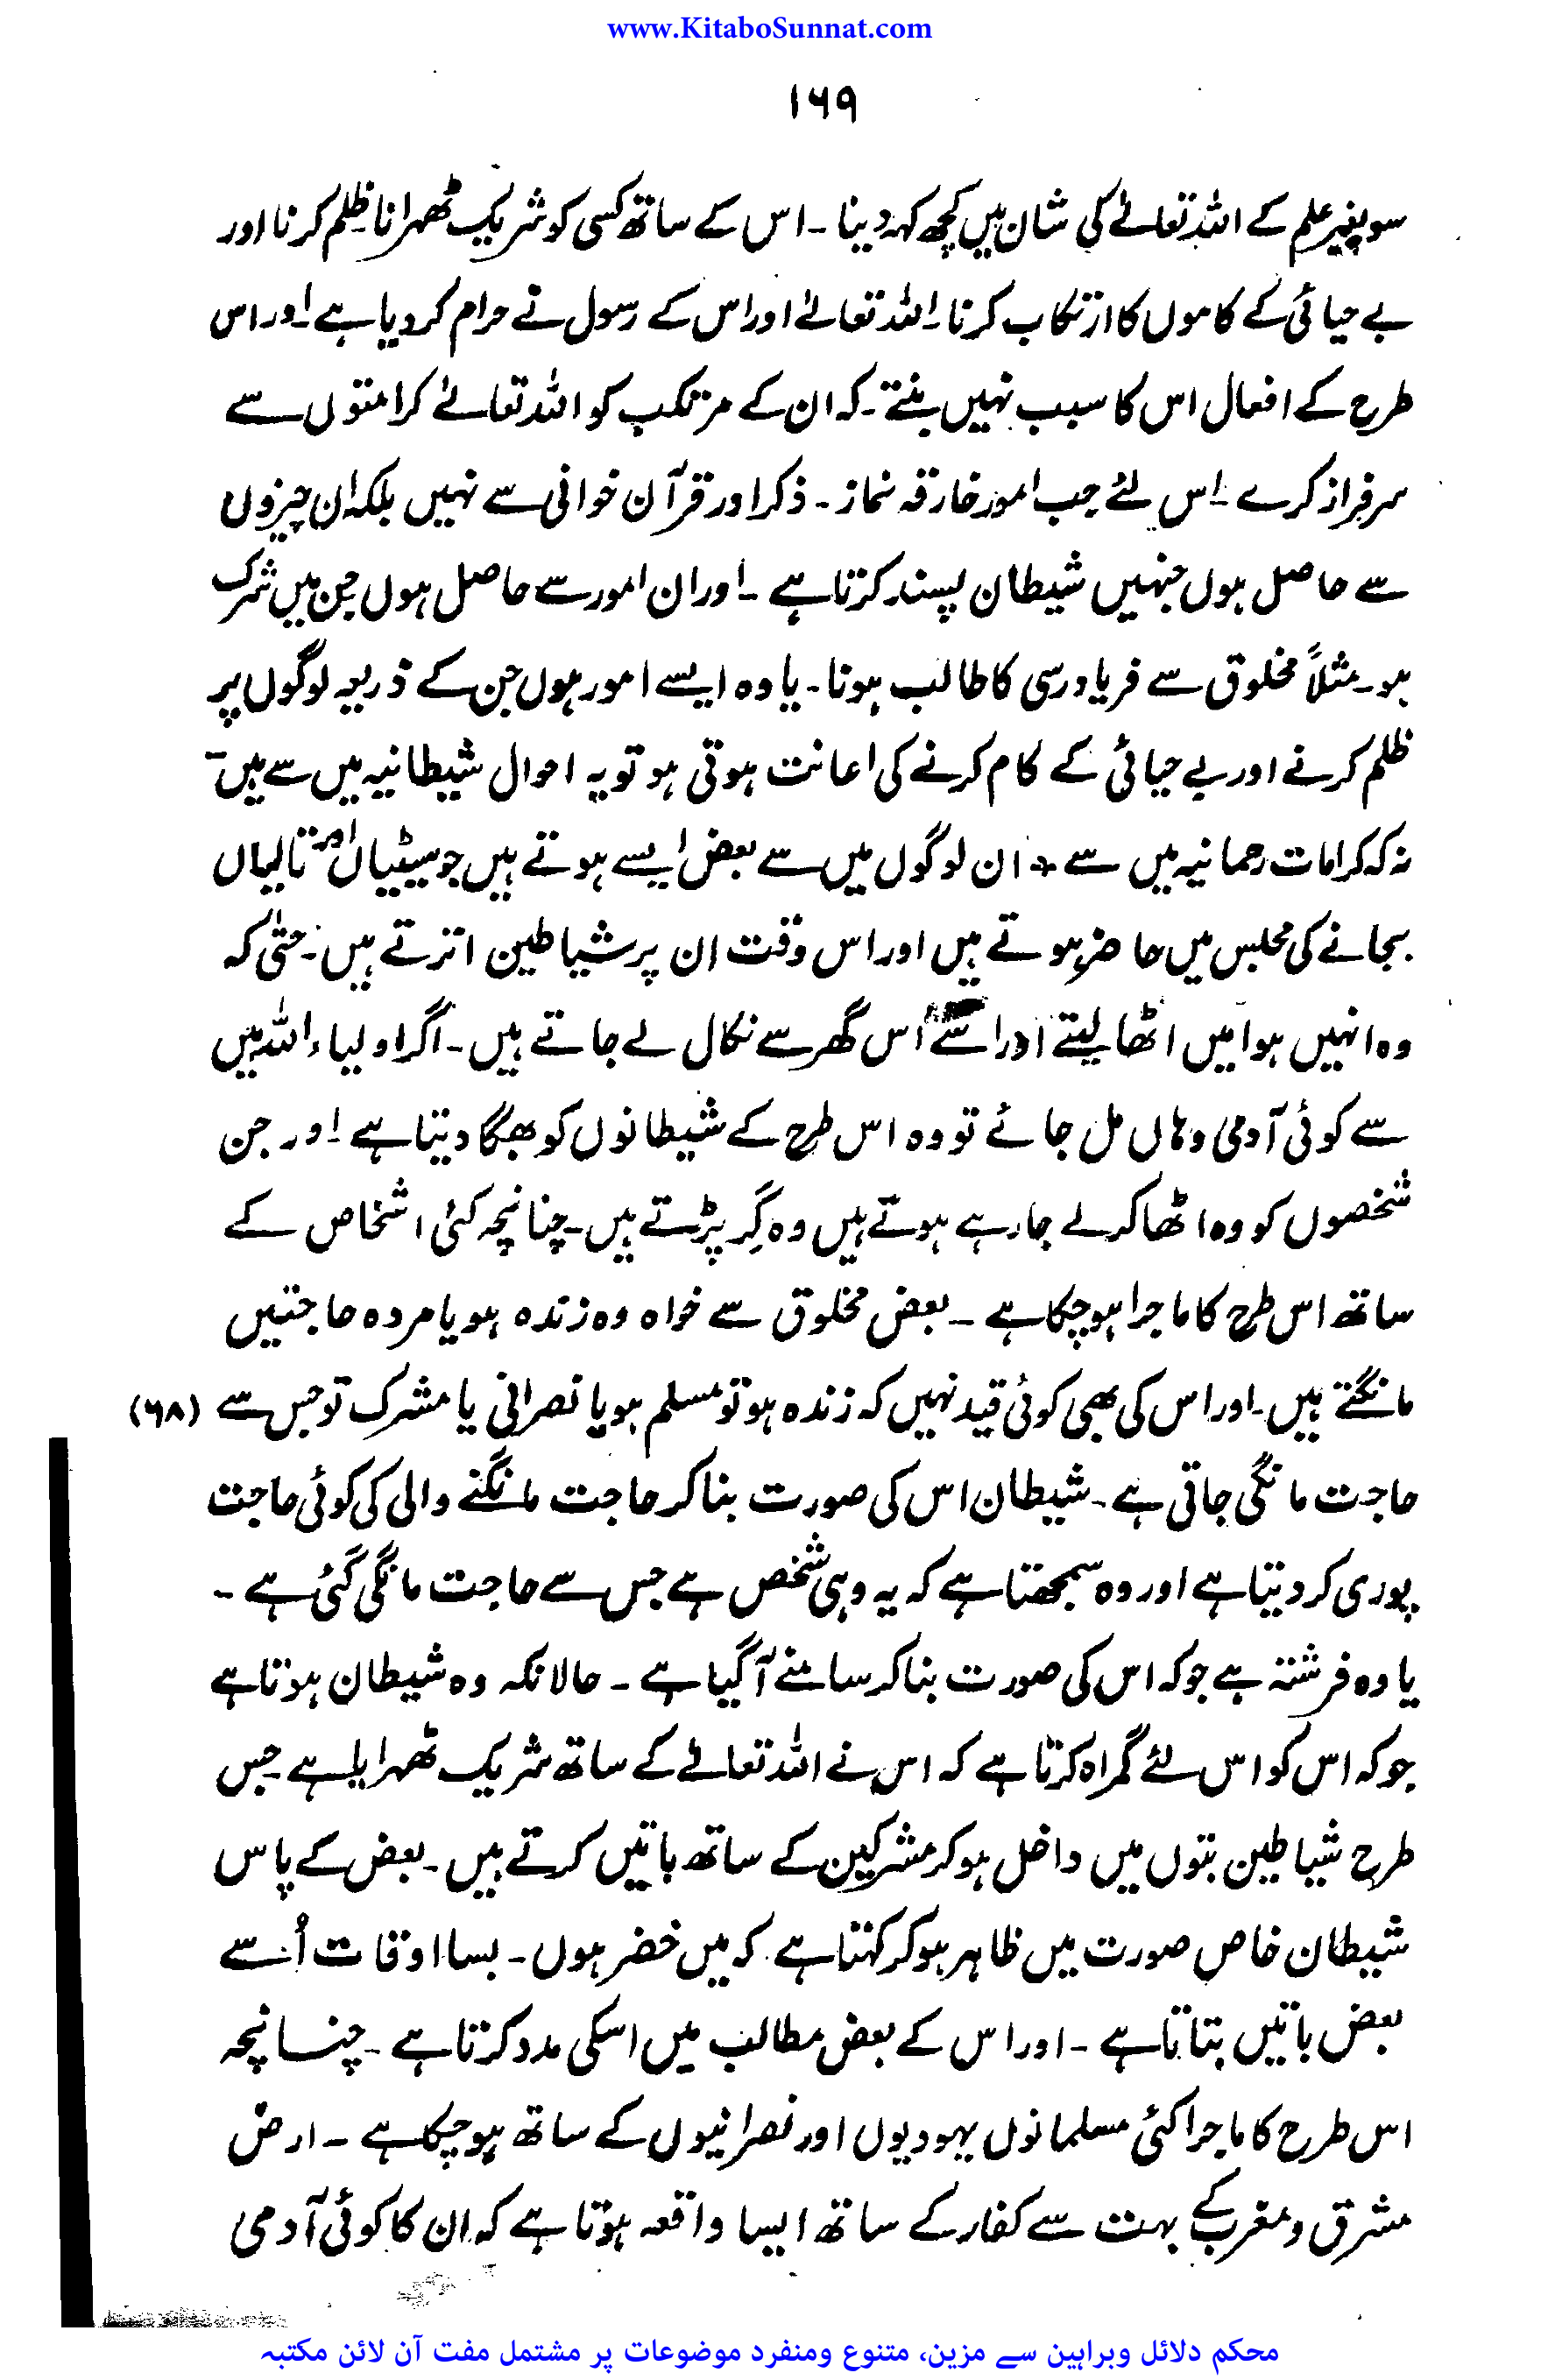 www.KitaboSunnat.com
۱۶۹
سو بغیر علم کے اللہ تعالےٰ کی شان میں کچھ کہہ دینا ۔ اس کے ساتھ کسی کو شریک ٹھہرانا ظلم کرنا اور
بے حیائی کے کاموں کا ارتکاب کرنا ۔ اللہ تعالےٰ اور اس کے رسول نے حرام کر دیا ہے ۔ اور اس
طرح کے افعال اس کا سبب نہیں بنتے ۔ کہ ان کے مرتکب کو اللہ تعالےٰ کرامتوں سے
سرفراز کرے ۔ اس لئے جب امور خارقہ نماز ۔ ذکر اور قرآن خوانی سے نہیں بلکہ ان چیزوں
سے حاصل ہوں جنہیں شیطان پسند کرتا ہے ۔ اور ان امور سے حاصل ہوں جن میں شرک
ہو ۔ مثلاً مخلوق سے فریاد رسی کا طالب ہونا ۔ یا وہ ایسے امور ہوں جن کے ذریعہ لوگوں پر
ظلم کرنے اور بے حیائی کے کام کرنے کی اعانت ہوتی ہو تو یہ احوال شیطانیہ میں سے ہیں ۔
نہ کہ کرامات رحمانیہ میں سے + ان لوگوں میں سے بعض ایسے ہوتے ہیں جو سیٹیاں اور تالیاں
بجانے کی مجلس میں حاضر ہوتے ہیں اور اس وقت ان پر شیاطین اترتے ہیں ۔ حتٰی کہ
وہ انہیں ہوا میں اٹھا لیتے اور اسے اس گھر سے نکال لے جاتے ہیں ۔ اگر اولیاء اللہ میں
سے کوئی آدمی وہاں مل جائے تو وہ اس طرح کے شیطانوں کو بھگا دیتا ہے اور جن
شخصوں کو وہ اٹھا کر لے جا رہے ہوتے ہیں وہ گِر پڑتے ہیں ۔ چنانچہ کئی اشخاص کے
ساتھ اس طرح کا ماجرا ہو چکا ہے ۔ بعض مخلوق سے خواہ وہ زندہ ہو یا مردہ حاجتیں
مانگتے ہیں ۔ اور اس کی بھی کوئی قید نہیں کہ زندہ ہو تو مسلم ہو یا نصرانی یا مشرک تو جس سے (۶۸)
حاجت مانگی جاتی ہے ۔ شیطان اس کی صورت بنا کر حاجت مانگنے والی کی کوئی حاجت
پوری کر دیتا ہے اور وہ سمجھتا ہے کہ یہ وہی شخص ہے جس سے حاجت مانگی گئی ہے ۔
یا وہ فرشتہ ہے جو کہ اس کی صورت بنا کر سامنے آ گیا ہے ۔ حالانکہ وہ شیطان ہوتا ہے
جو کہ اس کو اس لئے گمراہ کرتا ہے کہ اس نے اللہ تعالےٰ کے ساتھ شریک ٹھہرایا ہے ۔ جس
طرح شیاطین بتوں میں داخل ہو کر مشرکین کے ساتھ باتیں کرتے ہیں ۔ بعض کے پاس
شیطان خاص صورت میں ظاہر ہو کر کہتا ہے کہ میں خضر ہوں ۔ بسا اوقات اُسے
بعض باتیں بتاتا ہے ۔ اور اس کے بعض مطالب میں اسکی مدد کرتا ہے ۔ چنانچہ
اس طرح کا ماجرا کئی مسلمانوں یہودیوں اور نصرانیوں کے ساتھ ہو چکا ہے ۔ ارض
مشرق و مغرب کے بہت سے کفار کے ساتھ ایسا واقعہ ہوتا ہے کہ ان کا کوئی آدمی
محکم دلائل وبراہین سے مزین، متنوع ومنفرد موضوعات پر مشتمل مفت آن لائن مکتبہ